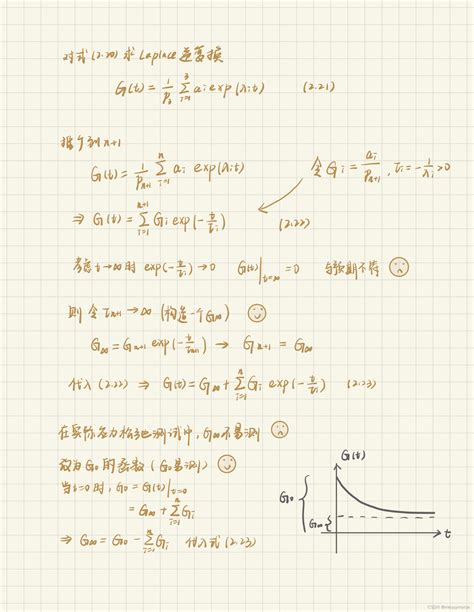 对式(2.20)求Laplace逆变换
G(t) = 1/P₃ Σ_{i=1}^{3} aᵢ exp(λᵢt) (2.21)
推广到 n+1
G(t) = 1/P_{n+1} Σ_{i=1}^{n} aᵢ exp(λᵢt) 令 Gᵢ = aᵢ/P_{n+1}, τᵢ = -1/λᵢ > 0
⇒ G(t) = Σ_{i=1}^{n+1} Gᵢ exp(-t/τᵢ) (2.22)
考虑 t→∞ 时 exp(-t/τᵢ) → 0 G(t)|_{t=∞} = 0 与预期不符
则令 τ_{n+1} → ∞ (构造一个 G∞)
G∞ = G_{n+1} exp(-t/τ_{n+1}) → G_{n+1} = G∞
代入 (2.22) ⇒ G(t) = G∞ + Σ_{i=1}^{n} Gᵢ exp(-t/τᵢ) (2.23)
在实际应力松弛测试中, G∞不易测
改为 G₀ 的函数 (G₀易测)
当t=0时, G₀ = G(t)|_{t=0}
= G∞ + Σ_{i=1}^{n} Gᵢ
⇒ G∞ = G₀ - Σ_{i=1}^{n} Gᵢ 代入式(2.23)
G(t)
G₀
G∞
t